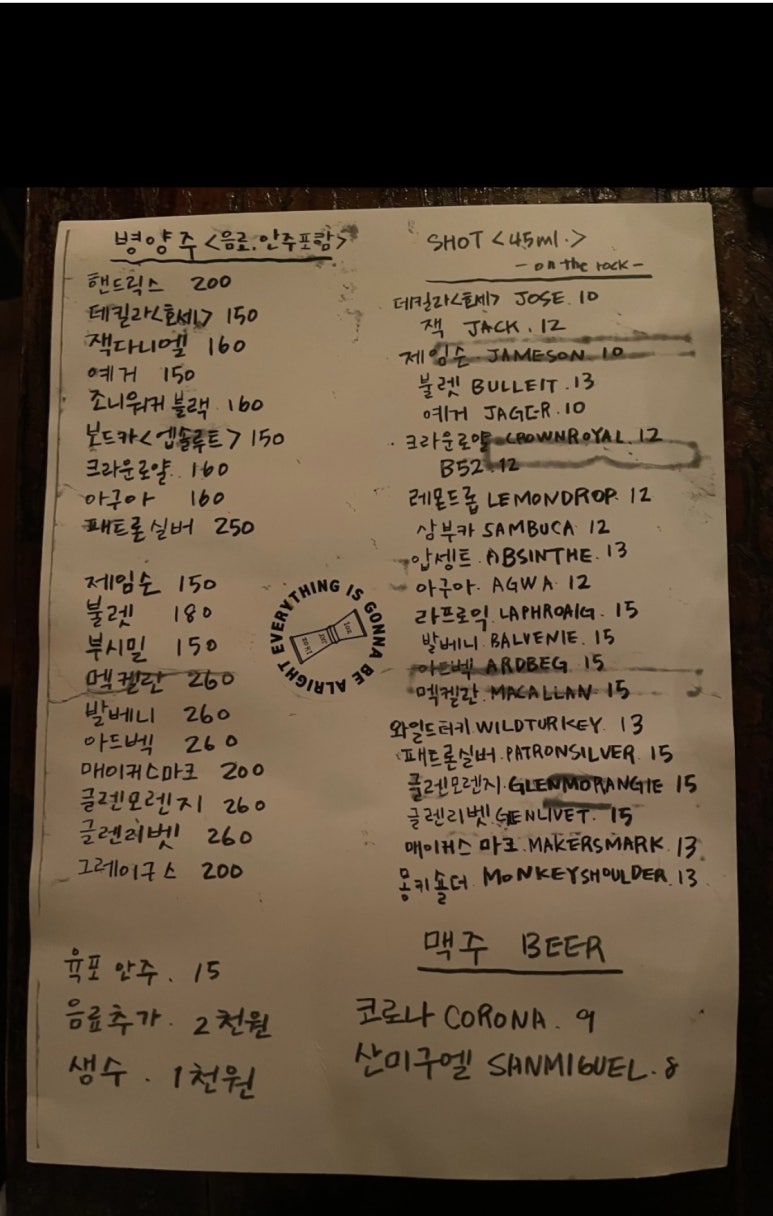 병양주 <음료.안주포함>
핸드릭스 200
데킬라<호세> 150
잭다니엘 160
예거 150
조니워커 블랙 160
보드카<엡솔루트> 150
크라운로얄. 160
아구아 160
패트론 실버 250
제임슨 150
불렛 180
부시밀 150
멕켈란 260
발베니 260
아드벡 260
매이커스마크 200
글렌모렌지 260
글렌리벳 260
그레이구스 200
육포 안주. 15
음료추가. 2천원
생수. 1천원
EVERYTHING IS GONNA BE ALRIGHT
SHOT <45ml.>
- on the rock -
데킬라<호세> JOSE. 10
잭 JACK. 12
제임슨. JAMESON. 10
불렛 BULLEIT. 13
예거 JAGER. 10
크라운로얄 CROWNROYAL. 12
B52. 12
레몬드롭 LEMONDROP. 12
삼부카 SAMBUCA 12
압셍트. ABSINTHE. 13
아구아. AGWA 12
라프로익. LAPHROAIG. 15
발베니. BALVENIE. 15
아드벡 ARDBEG 15
멕켈란. MACALLAN. 15
와일드터키. WILDTURKEY. 13
패트론실버. PATRONSILVER. 15
글렌모렌지. GLENMORANGIE 15
글렌리벳. GENLIVET. 15
매이커스 마크. MAKERSMARK. 13
몽키숄더. MONKEYSHOULDER. 13
맥주 BEER
코로나 CORONA. 9
산미구엘 SANMIGUEL. 8